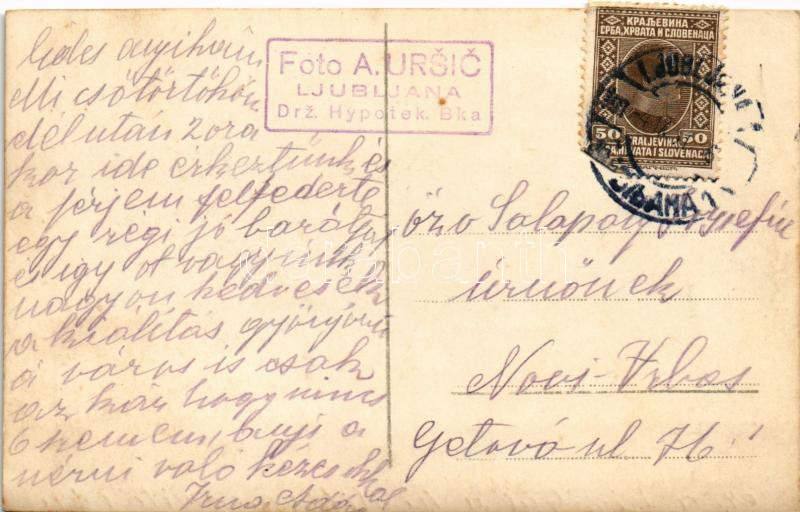 Édes anyikám
Mi csötörtökön
délután 2 ora
kor ide érkeztünk és
a férjem felfederte
egy régi jó barátját
és igy ot vagyunk
nagyon kedvesek
a kiálitás gyönyörü
a város is csak
az kár hogy nincs
6 szemem, anyi a
nézni való kézcsokkal
Foto A. URŠIČ
LJUBLJANA
Drž. Hypotek. Bka
КРАЉЕВИНА
СРБА, ХРВАТА И СЛОВЕНАЦА
50 50
KRALJEVINA
SRBA, HRVATA I SLOVENACA
LJUBLJANA 1
özv
urnőnek
Novi-Vrbas
ul
darabanth